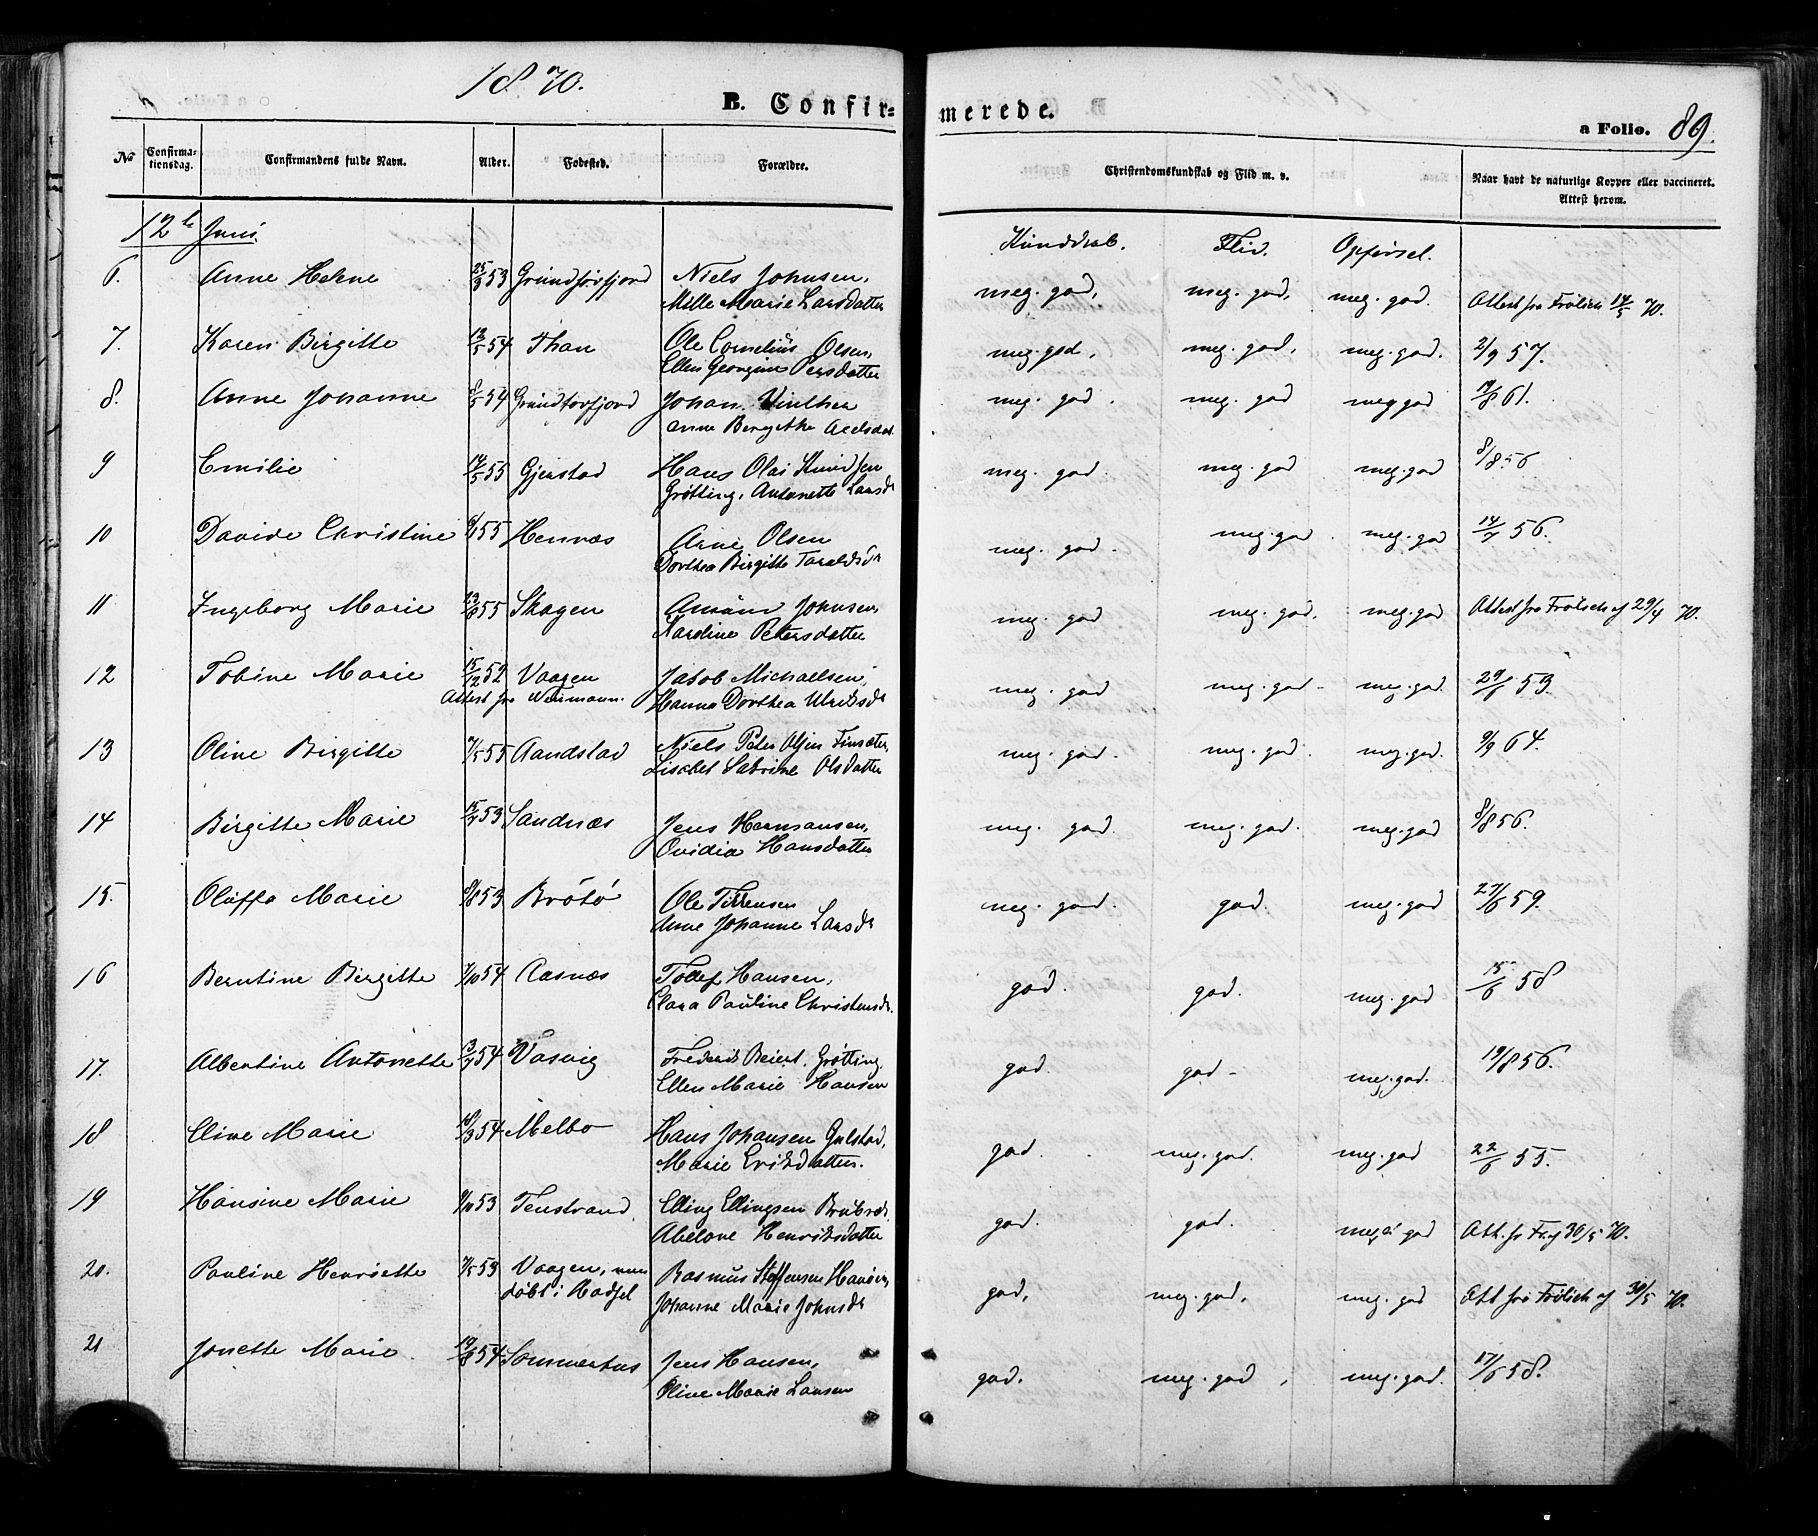 1870.
B. Confir=
merede.
a Folio. 89.
No
Confirma-
tionsdag.
Confirmandens fulde Navn.
Alder.
Fødested.
Forældre.
Christendomskundskab og Flid m. v.
Naar havt de naturlige Kopper eller vaccineret.
Attest herom.
12te Juni.
Kundskab. Flid. Opførsel.
6. Anne Helene 25/3 53 Grundførfjord Niels Johnsen,
Mille Marie Larsdatter
meg. god, meg. god, meg. god. Attest fra Frölich 14/5 70.
7. Karen Birgitte 13/5 54 Than Ole Cornelius Olsen,
Ellen Georgine Persdatter
meg. god, meg. god, meg. god. 2/9 57.
8. Anne Johanne 8/5 54 Grundførfjord Johan Vinther
Anne Bergithe Axelsdat.
meg. god. meg. god meg god 19/8 61.
9 Emilie 14/5 55 Gjerstad Hans Olai Knudsen
Grøtting, Antonette Larsdr
meg. god. meg. god meg. god 8/8 56
10 Davide Christine 6/1 55 Hennæs Arne Olsen
Dorthea Birgitte Taraldsdr
meg. god. meg. god. meg. god 14/7 56.
11 Ingeborg Marie 23/8 55 Skagen Johnsen,
Karoline Petersdatter
meg. god meg. god, meg. god Attest fra Frölich af 29/4 70.
12 Tobine Marie 15/12 52 Vaagen Jakob Michaelsen,
Attest fra Normann. Hanna Dorthea Ulriksdr
meg. god meg. god - meg. god. 29/6 53.
13 Oline Birgitte 7/5 55 Aandstad Niels Peter Olsen Finsæter,
Lisebet Sabrine Olsdatter
meg. god meg. god. meg. god. 9/9 64.
14 Birgitte Marie 15/7 53 Sandnæs Jens Hermansen,
Ovidia Hansdatter
meg. god meg. god. meg. god 8/8 56.
15. Oluffa Marie 8/8 53 Brötö Ole
Anne Johanne Larsdr
meg. god. god. meg. god 27/6 59.
16 Berntine Birgitte 7/10 54 Aasnæs Tollef Hansen,
Clara Pauline Christensdr.
god. god. meg. god 15/6 58
17. Albertine Antonette 13/7 54 Vasvig Frederik Beiert. Grøtting
Ellen Marie Hansen
god. god - meg. god. 19/8 56.
18 Eline Marie 18/3 54 Melbo Hans Johansen Gulstad,
Marie Eriksdatter.
god. meg. god. meg. god 22/6 55.
19 Hansine Marie 9/10 53 Fenstrand. Elling Ellingsen
Abelone Henriksdatter
god. god. meget god Att. fr Fr. af 30/5 70.
20. Pauline Henriette 7/5 53 Vaagen, men Rasmus Steffensen
döbt i Hadsel Johanne Marie Johnsdr
god, meg. god, meg. god Att fra Frölich af 30/5 70.
21 Jonette Marie 19/8 54 Sommerhus Jens Hansen,
Oline Marie Larsen
god. meg. god, meg. god. 17/6 58.